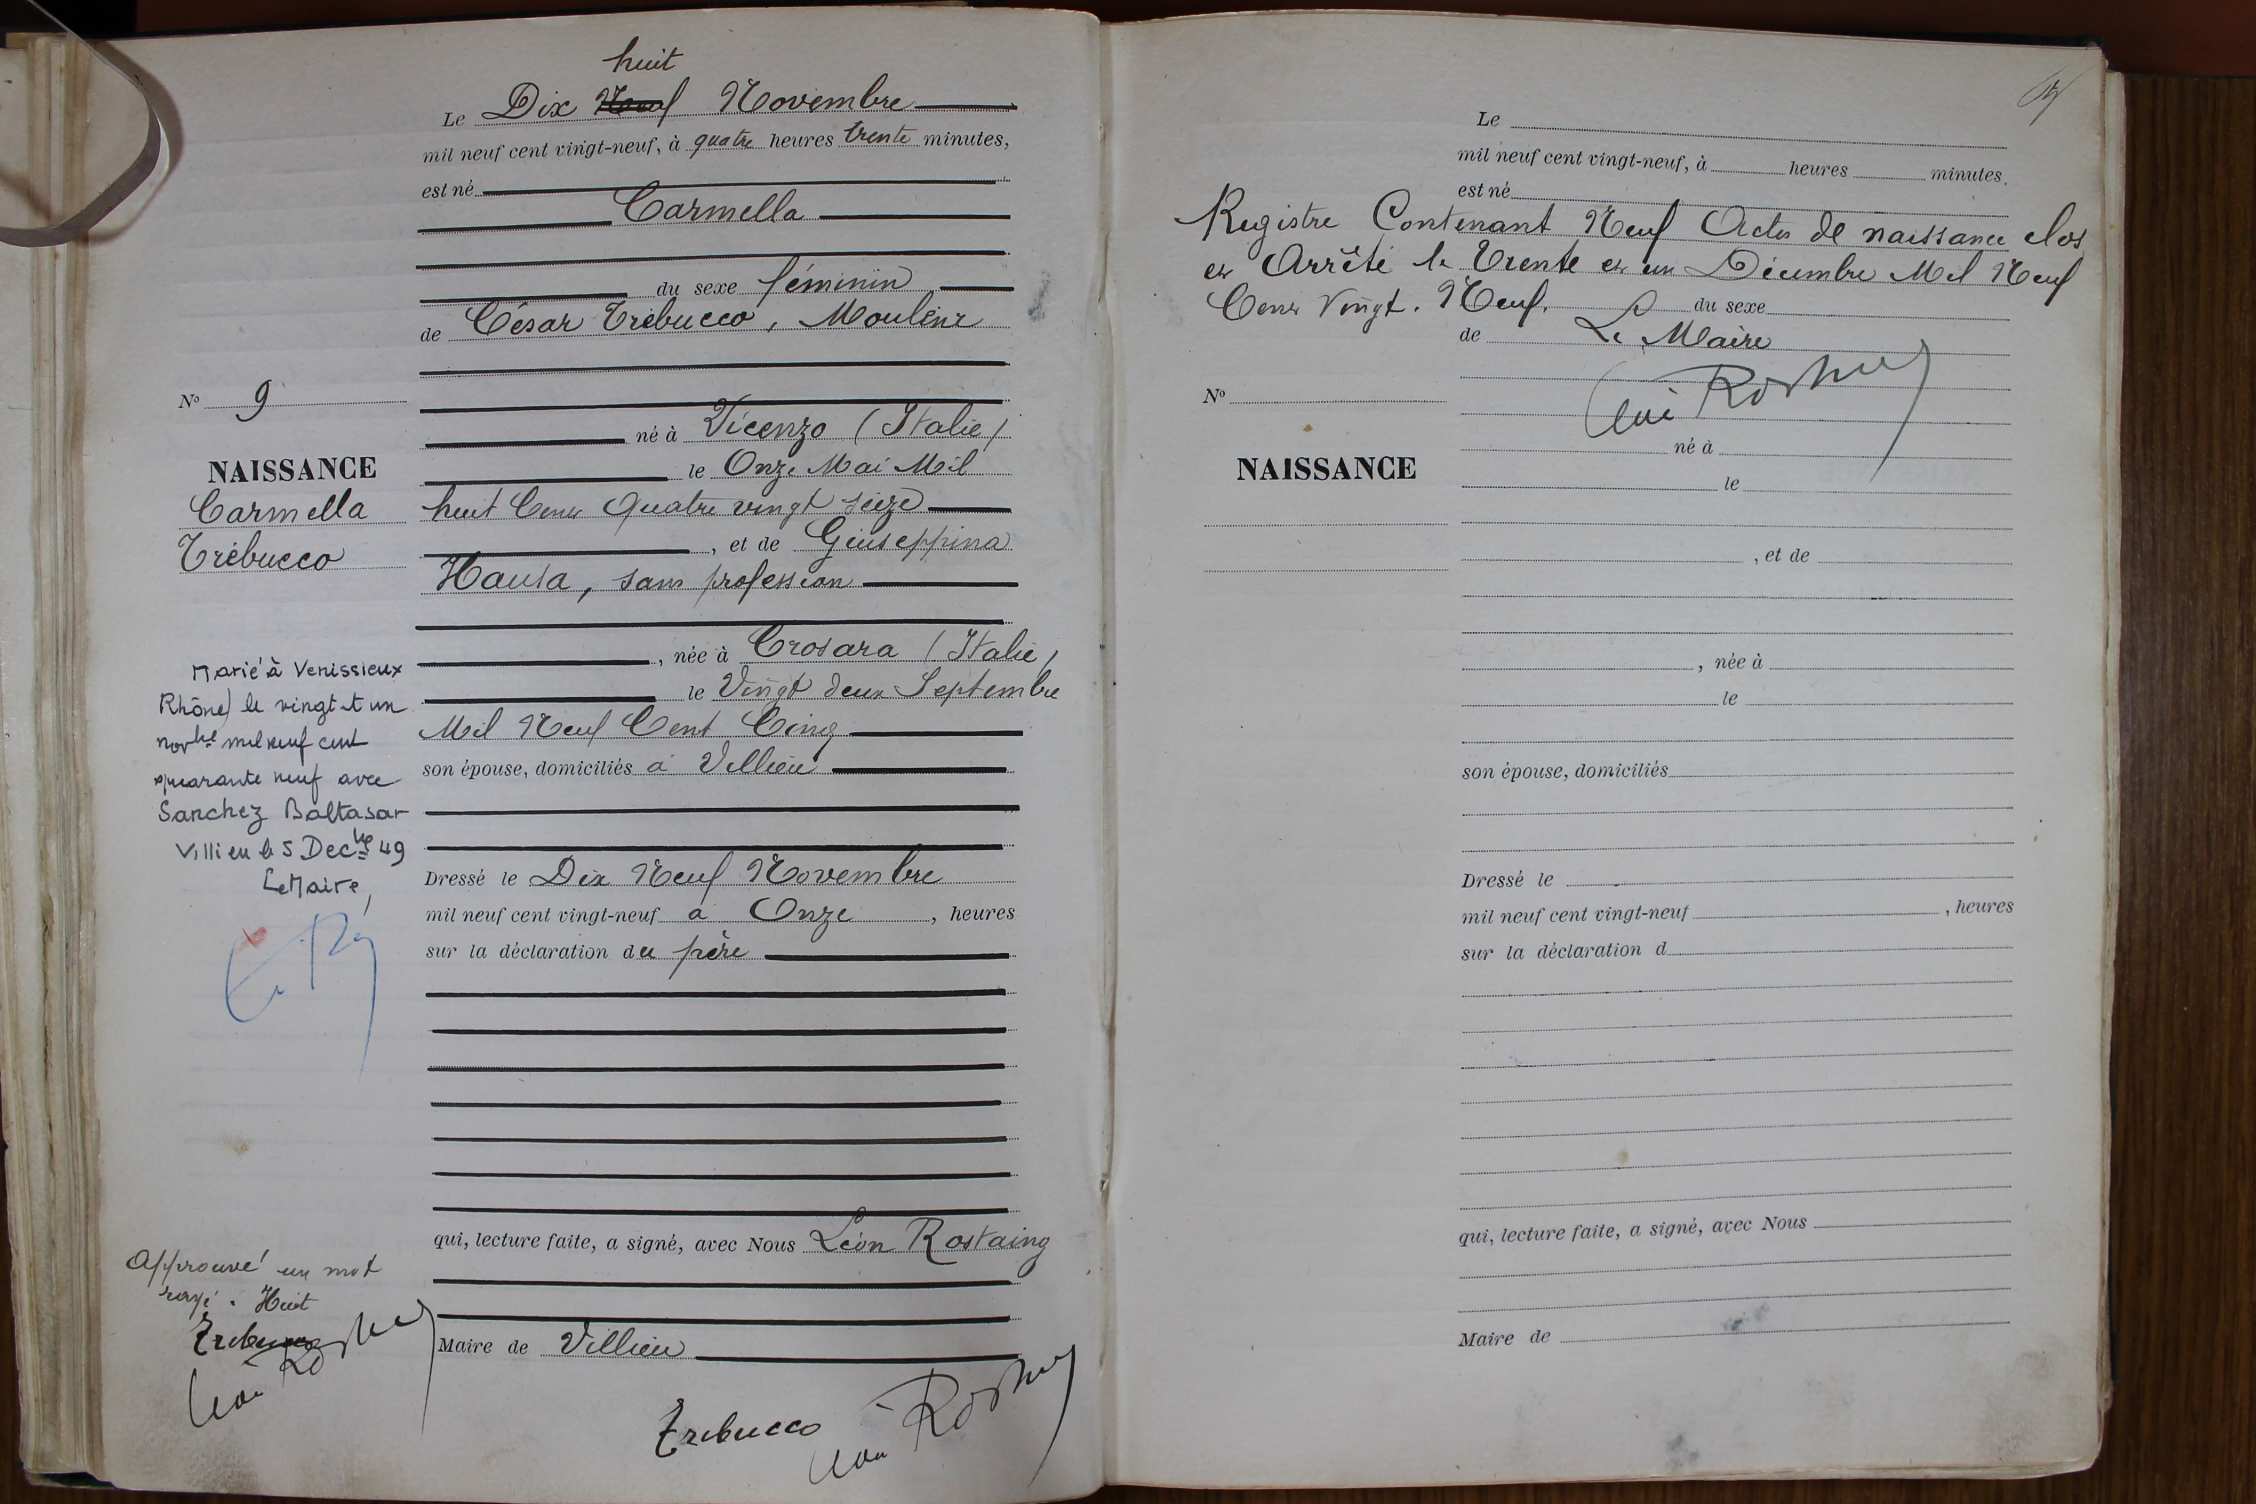 huit
Le Dix Neuf Novembre
mil neuf cent vingt-neuf, à quatre heures trente minutes,
est né
Carmella
du sexe féminin
de César Trébucco, Mouleur
né à Vicenzo (Italie)
le Onze Mai Mil
huit Cent Quatre vingt seize
, et de Giuseppina
sans profession
, née à Crosara (Italie)
le Vingt deux Septembre
Mil Neuf Cent Cinq
son épouse, domiciliés à Villieu
Dressé le Dix Neuf Novembre
mil neuf cent vingt-neuf à Onze, heures
sur la déclaration du père
qui, lecture faite, a signé, avec Nous Léon Rostaing
Maire de Villieu
Trebucco
Léon Rostaing
No 9
NAISSANCE
Carmella
Trébucco
Marié à Venissieux
Rhône) le vingt et un
novbre mil neuf cent
quarante neuf avec
Sanchez Baltasar
Villieu le 5 Decbre 49
Le Maire,
Approuvé un mot
rayé. Huit
Trebucco
Léon Rostaing
Le
mil neuf cent vingt-neuf, à heures minutes.
est né
Registre Contenant Neuf Actes de naissance clos
et Arrêté le Trente et un Décembre Mil Neuf
Cent Vingt. Neuf.
du sexe
de Le Maire
Léon Rostaing
No
NAISSANCE
né à
le
, et de
, née à
le
son épouse, domiciliés
Dressé le
mil neuf cent vingt-neuf , heures
sur la déclaration d
qui, lecture faite, a signé, avec Nous
Maire de